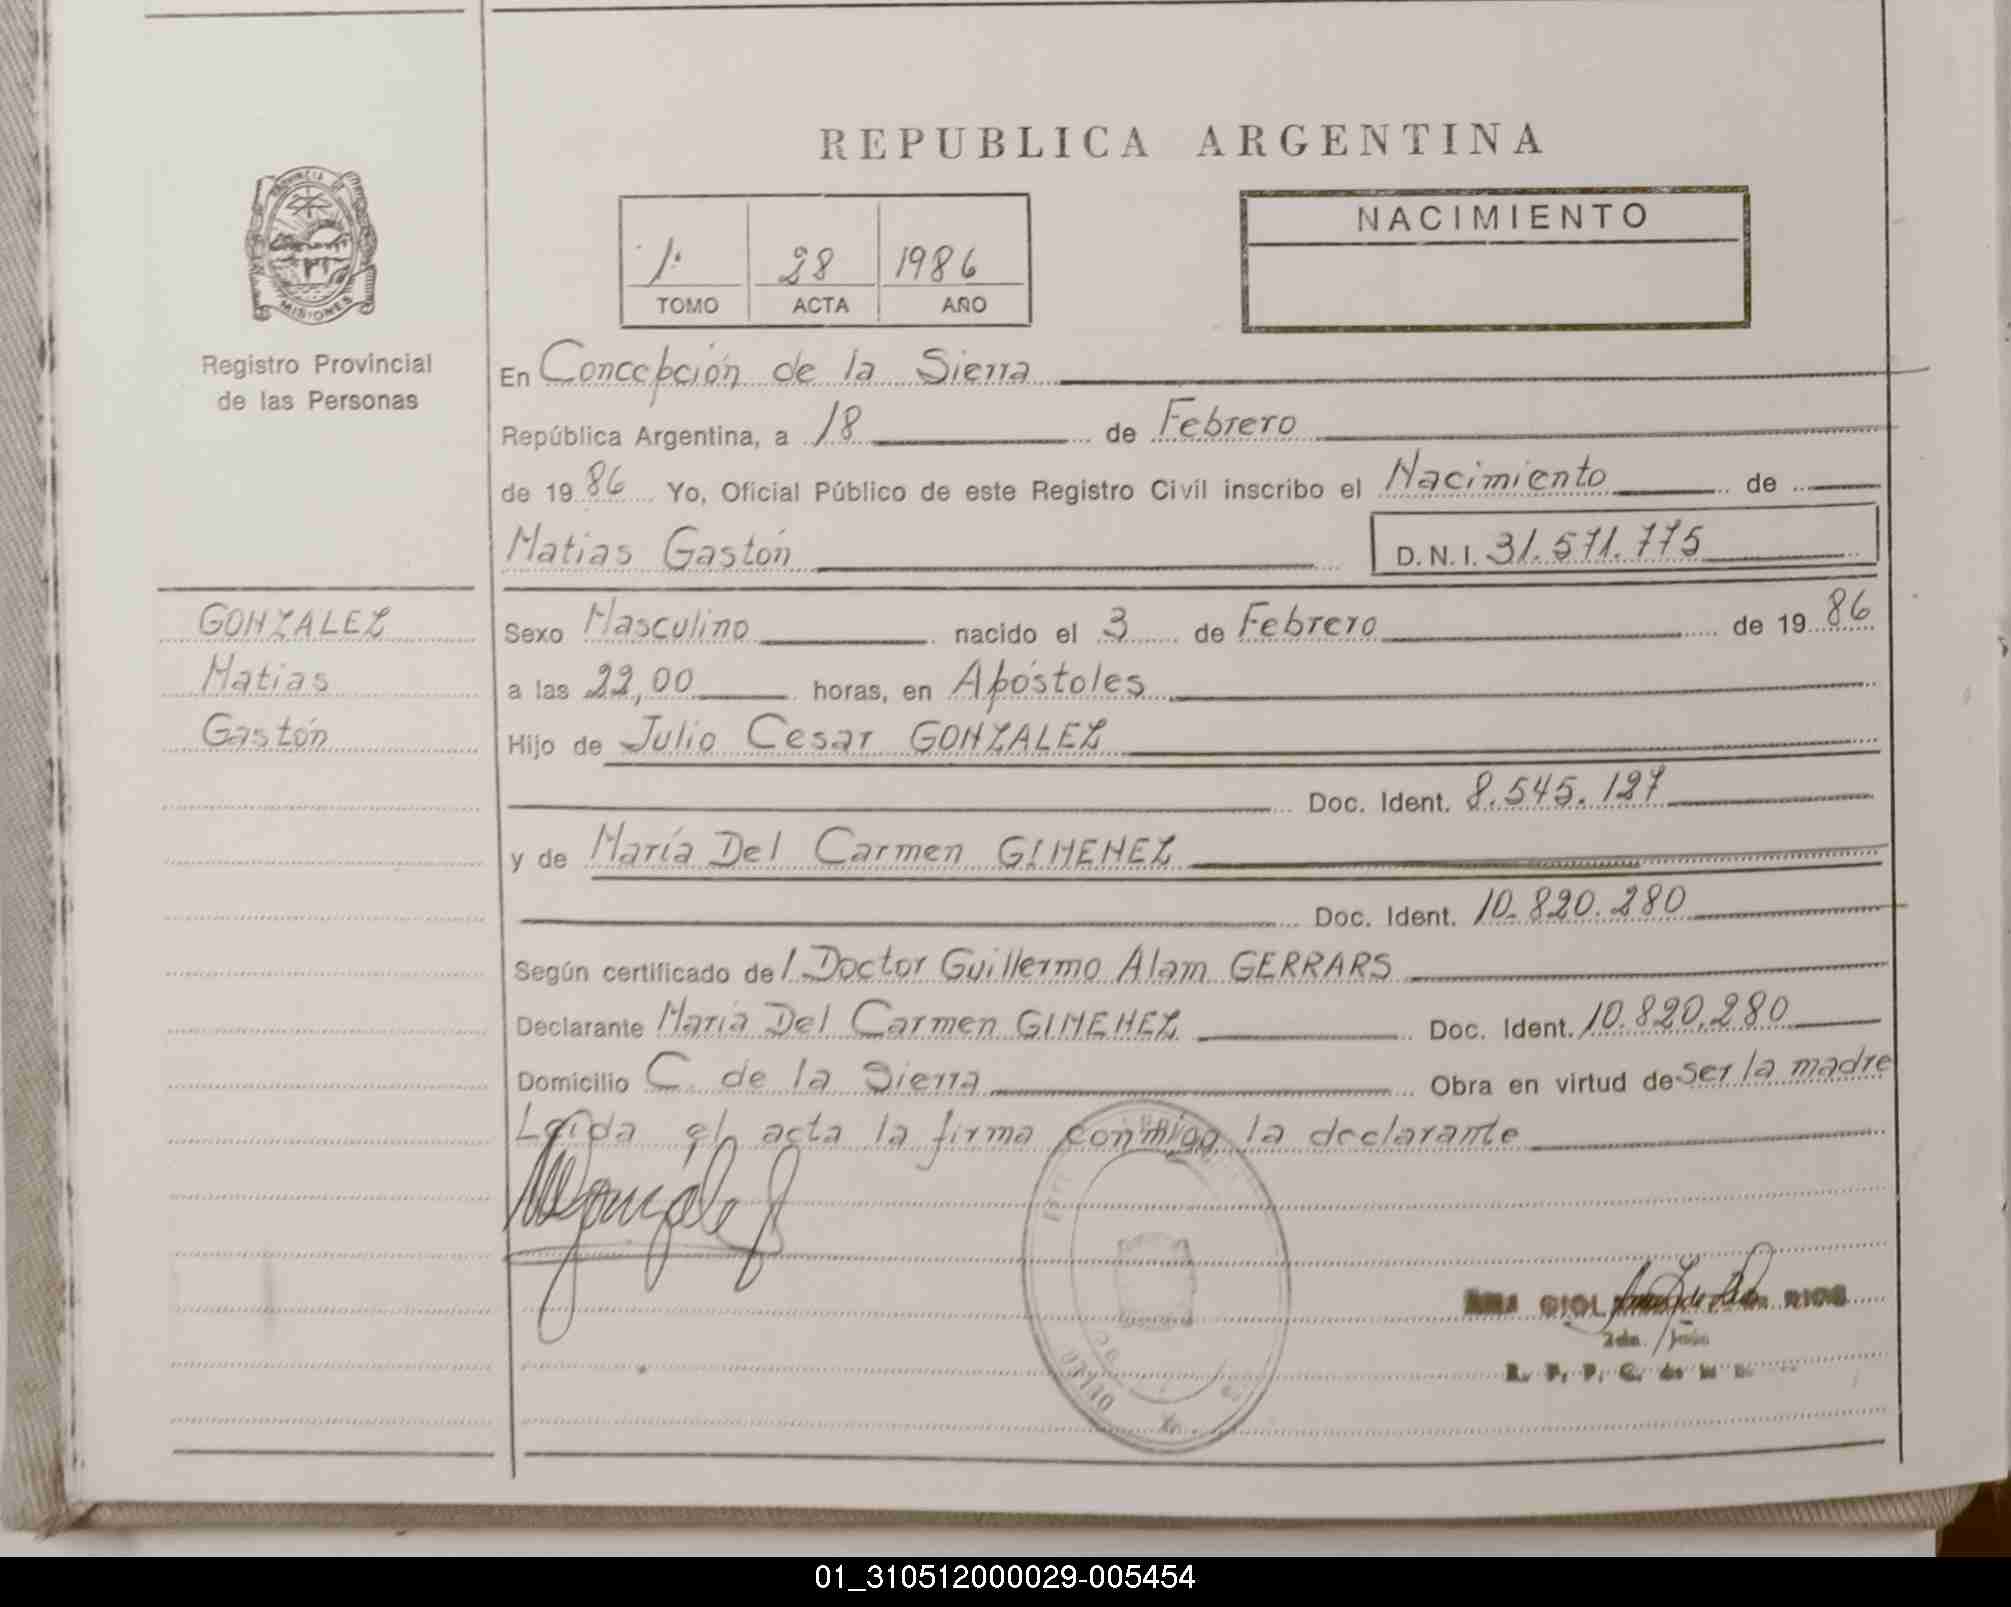 REPUBLICA ARGENTINA
PROVINCIA DE
MISIONES
Registro Provincial
de las Personas
1º 28 1986
TOMO ACTA AÑO
NACIMIENTO
En Concepción de la Sierra
República Argentina, a 18 de Febrero
de 1986 Yo, Oficial Público de este Registro Civil inscribo el Nacimiento de
Matias Gastón D.N.I. 31.571.775
GONZALEZ
Matias
Gastón
Sexo Masculino nacido el 3 de Febrero de 1986
a las 22,00 horas, en Apóstoles
Hijo de Julio Cesar GONZALEZ
Doc. Ident. 8.545.127
y de María Del Carmen GIMENEZ
Doc. Ident. 10.820.280
Según certificado del Doctor Guillermo Alam GERRARS
Declarante María Del Carmen GIMENEZ Doc. Ident. 10.820.280
Domicilio C. de la Sierra Obra en virtud de ser la madre
Leida el acta la firma conmigo la declarante
RIOS
01_310512000029-005454